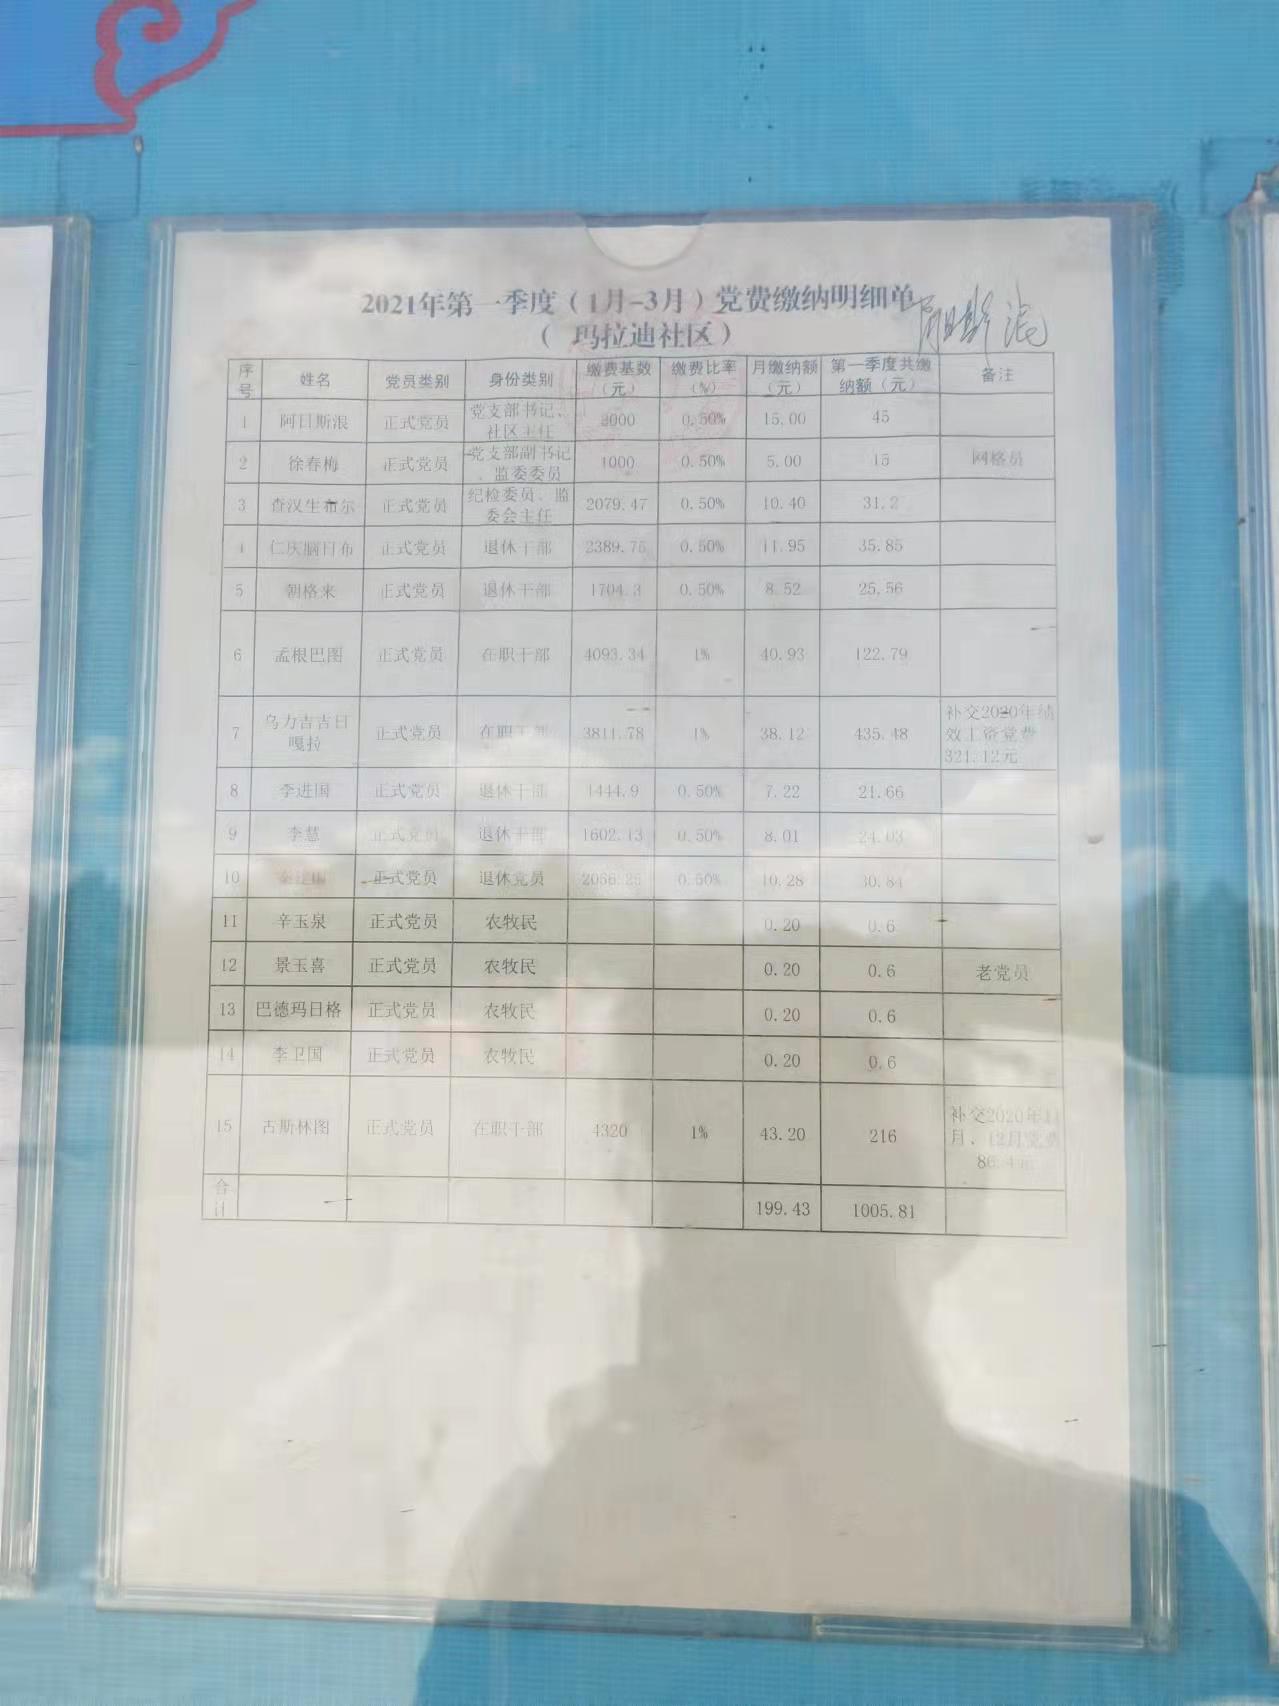 2021年第一季度（1月-3月）党费缴纳明细单
（ 玛拉迪社区）
序号 姓名 党员类别 身份类别 缴费基数（元） 缴费比率（%） 月缴纳额（元） 第一季度共缴纳额（元） 备注
1 阿日斯浪 正式党员 党支部书记、社区主任 3000 0.50% 15.00 45
2 徐春梅 正式党员 党支部副书记、监委委员 1000 0.50% 5.00 15 网格员
3 查汉生布尔 正式党员 纪检委员、监委会主任 2079.47 0.50% 10.40 31.2
4 正式党员 退休干部 2389.75 0.50% 11.95 35.85
5 朝格来 正式党员 退休干部 1704.3 0.50% 8.52 25.56
6 孟根巴图 正式党员 在职干部 4093.34 1% 40.93 122.79
7 乌力吉吉日嘎拉 正式党员 在职干部 3811.78 1% 38.12 435.48 补交2020年绩效工资党费321.12元
8 李进国 正式党员 退休干部 1444.9 0.50% 7.22 21.66
9 李慧 正式党员 退休干部 1602.13 0.50% 8.01 24.03
10 正式党员 退休党员 0.50% 10.28 30.84
11 辛玉泉 正式党员 农牧民 0.20 0.6
12 景玉喜 正式党员 农牧民 0.20 0.6 老党员
13 巴德玛日格 正式党员 农牧民 0.20 0.6
14 李卫国 正式党员 农牧民 0.20 0.6
15 古斯林图 正式党员 在职干部 4320 1% 43.20 216 补交2020年11月、12月党费86.4元
合计 199.43 1005.81